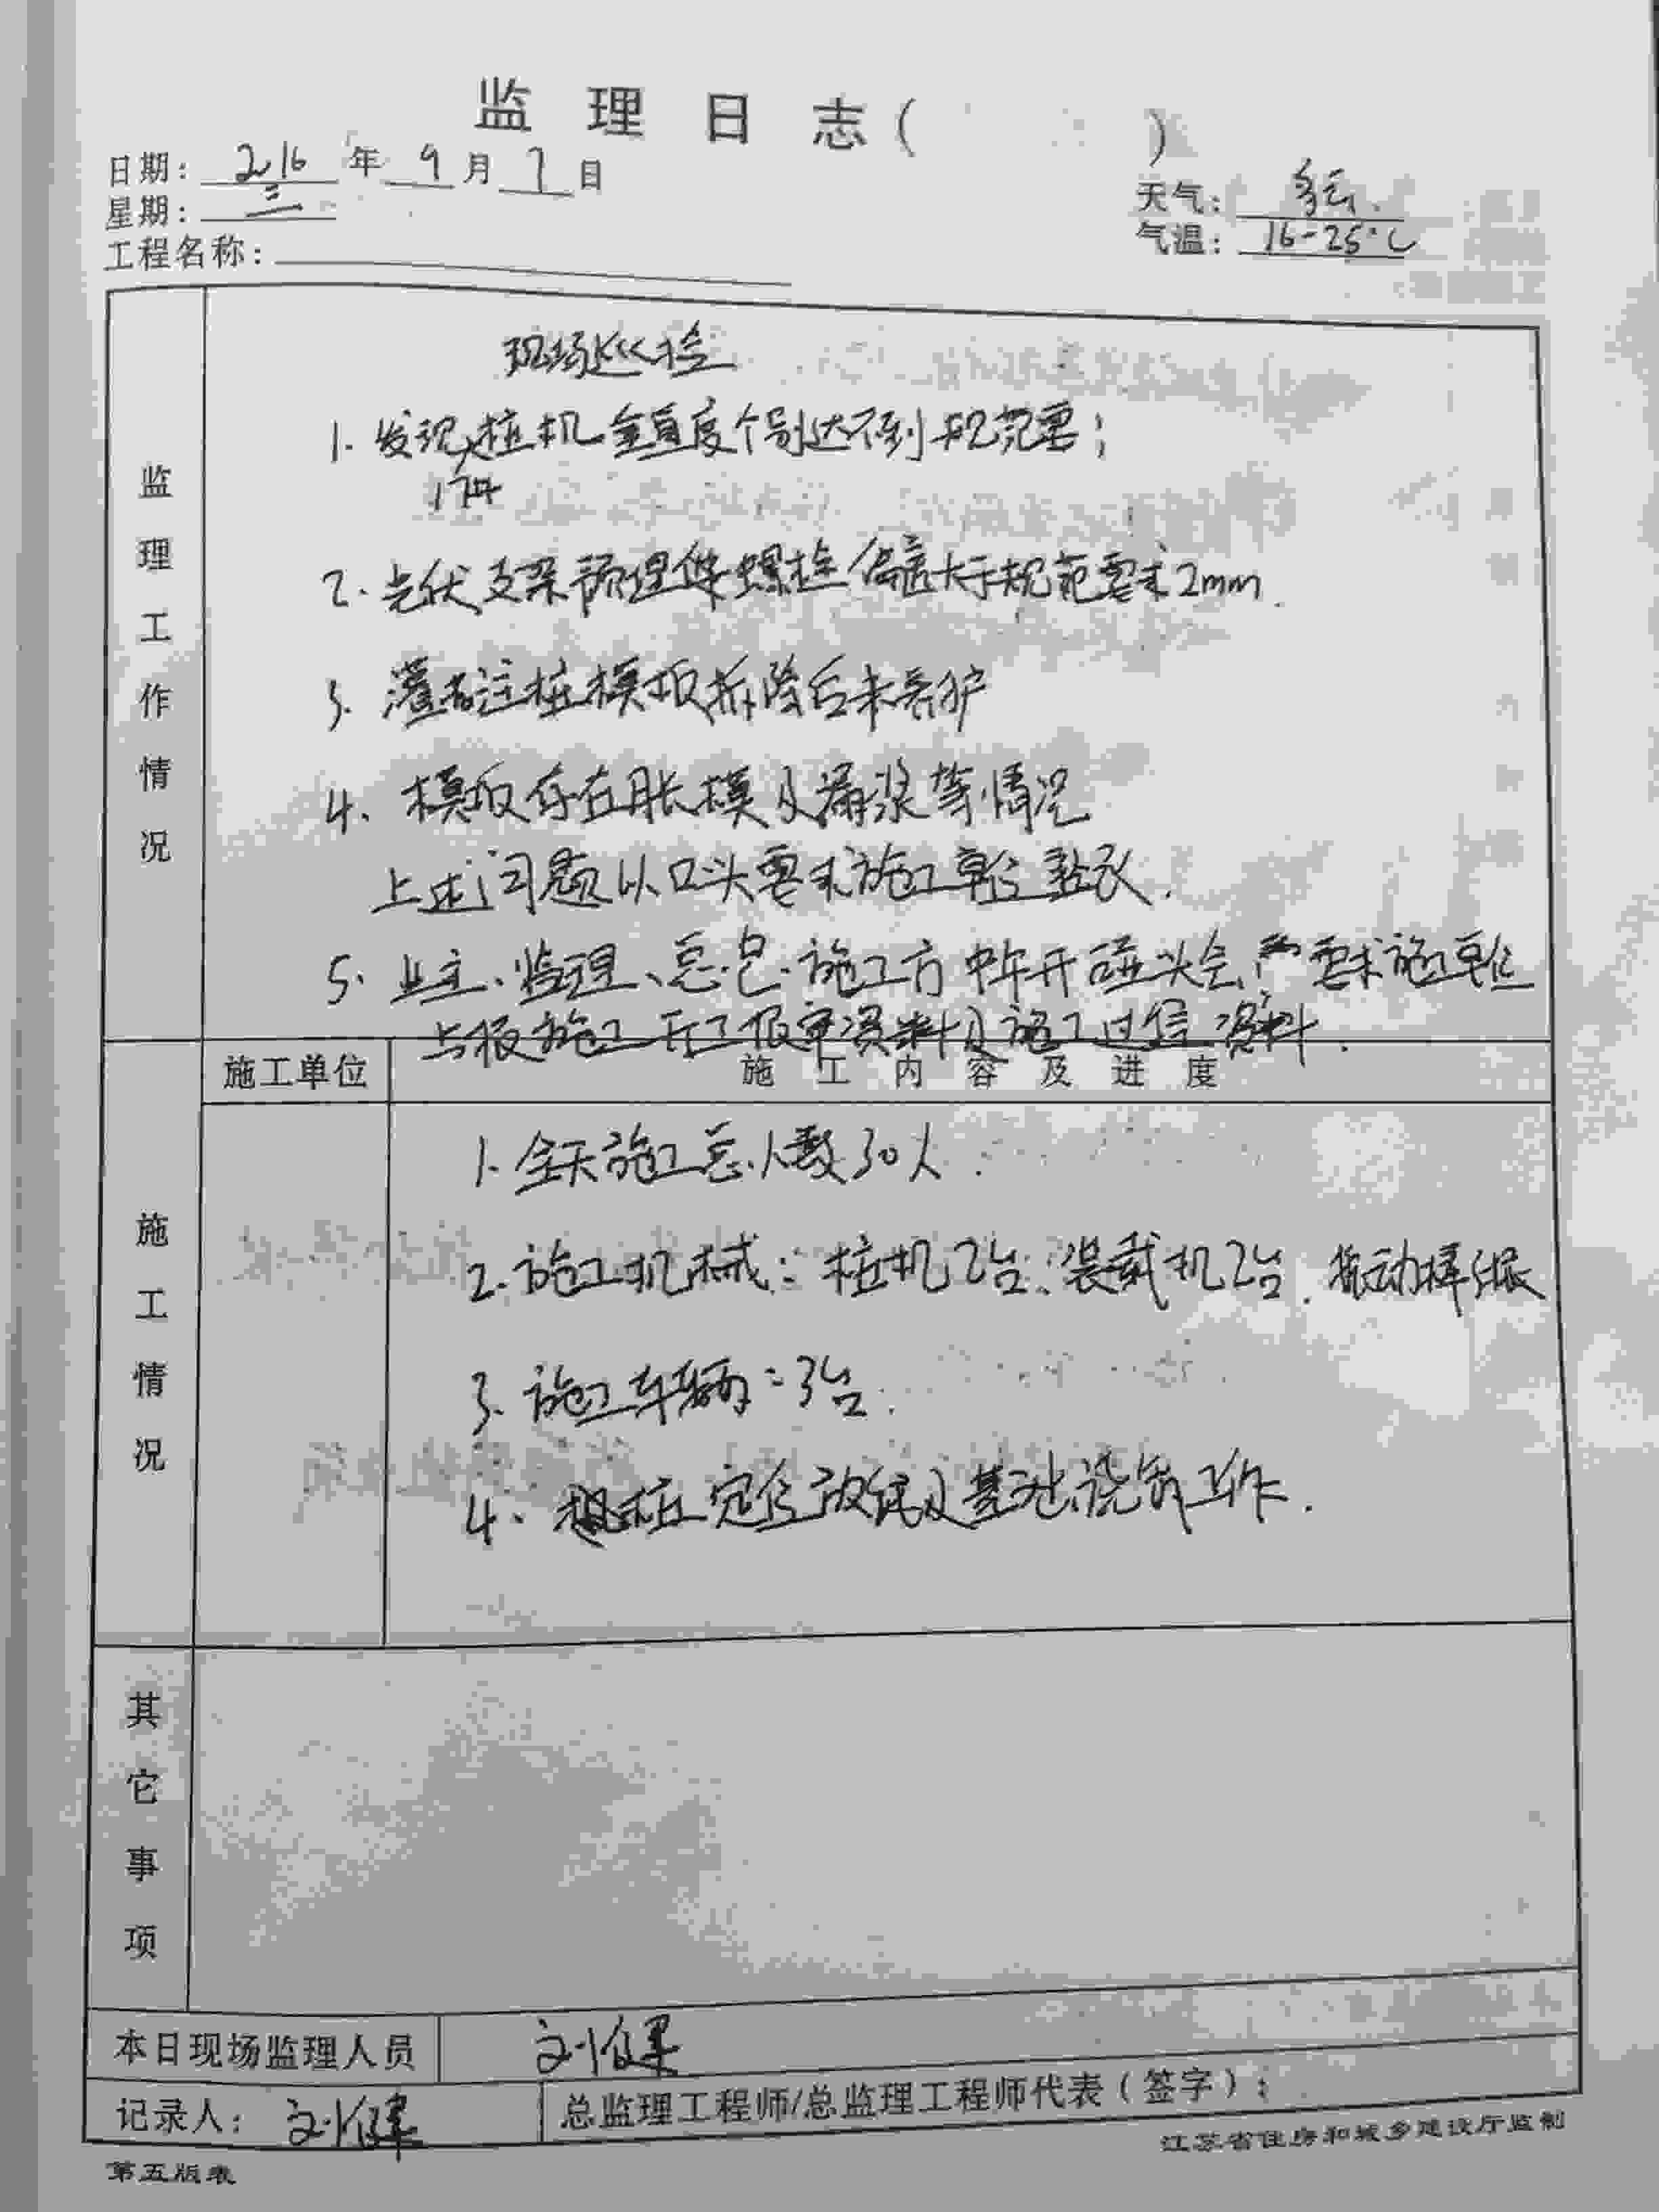 监理日志（ ）
日期：2016年9月7日
星期：三
天气：多云.
气温：16-25℃
工程名称：
监理工作情况
现场巡检
1. 发现桩机垂直度个别达不到规范要;
2. 光伏支架预埋件螺栓偏差大于规范要求2mm.
3. 灌注桩模板拆除后未养护
4. 模板存在胀模及漏浆等情况
上述问题以口头要求施工单位整改.
5. 业主、监理、总包、施工方中午开碰头会、要求施工单位
上报施工开工报审资料及施工过程资料.
施工单位 施工内容及进度
施工情况
1. 全天施工总人数30人.
2. 施工机械：桩机2台、装载机2台.振动棒
3. 施工车辆：3台.
4. 桩定位放线及基础浇筑工作.
其它事项
本日现场监理人员 刘健
记录人：刘健 总监理工程师/总监理工程师代表（签字）：
江苏省住房和城乡建设厅监制
第五版表